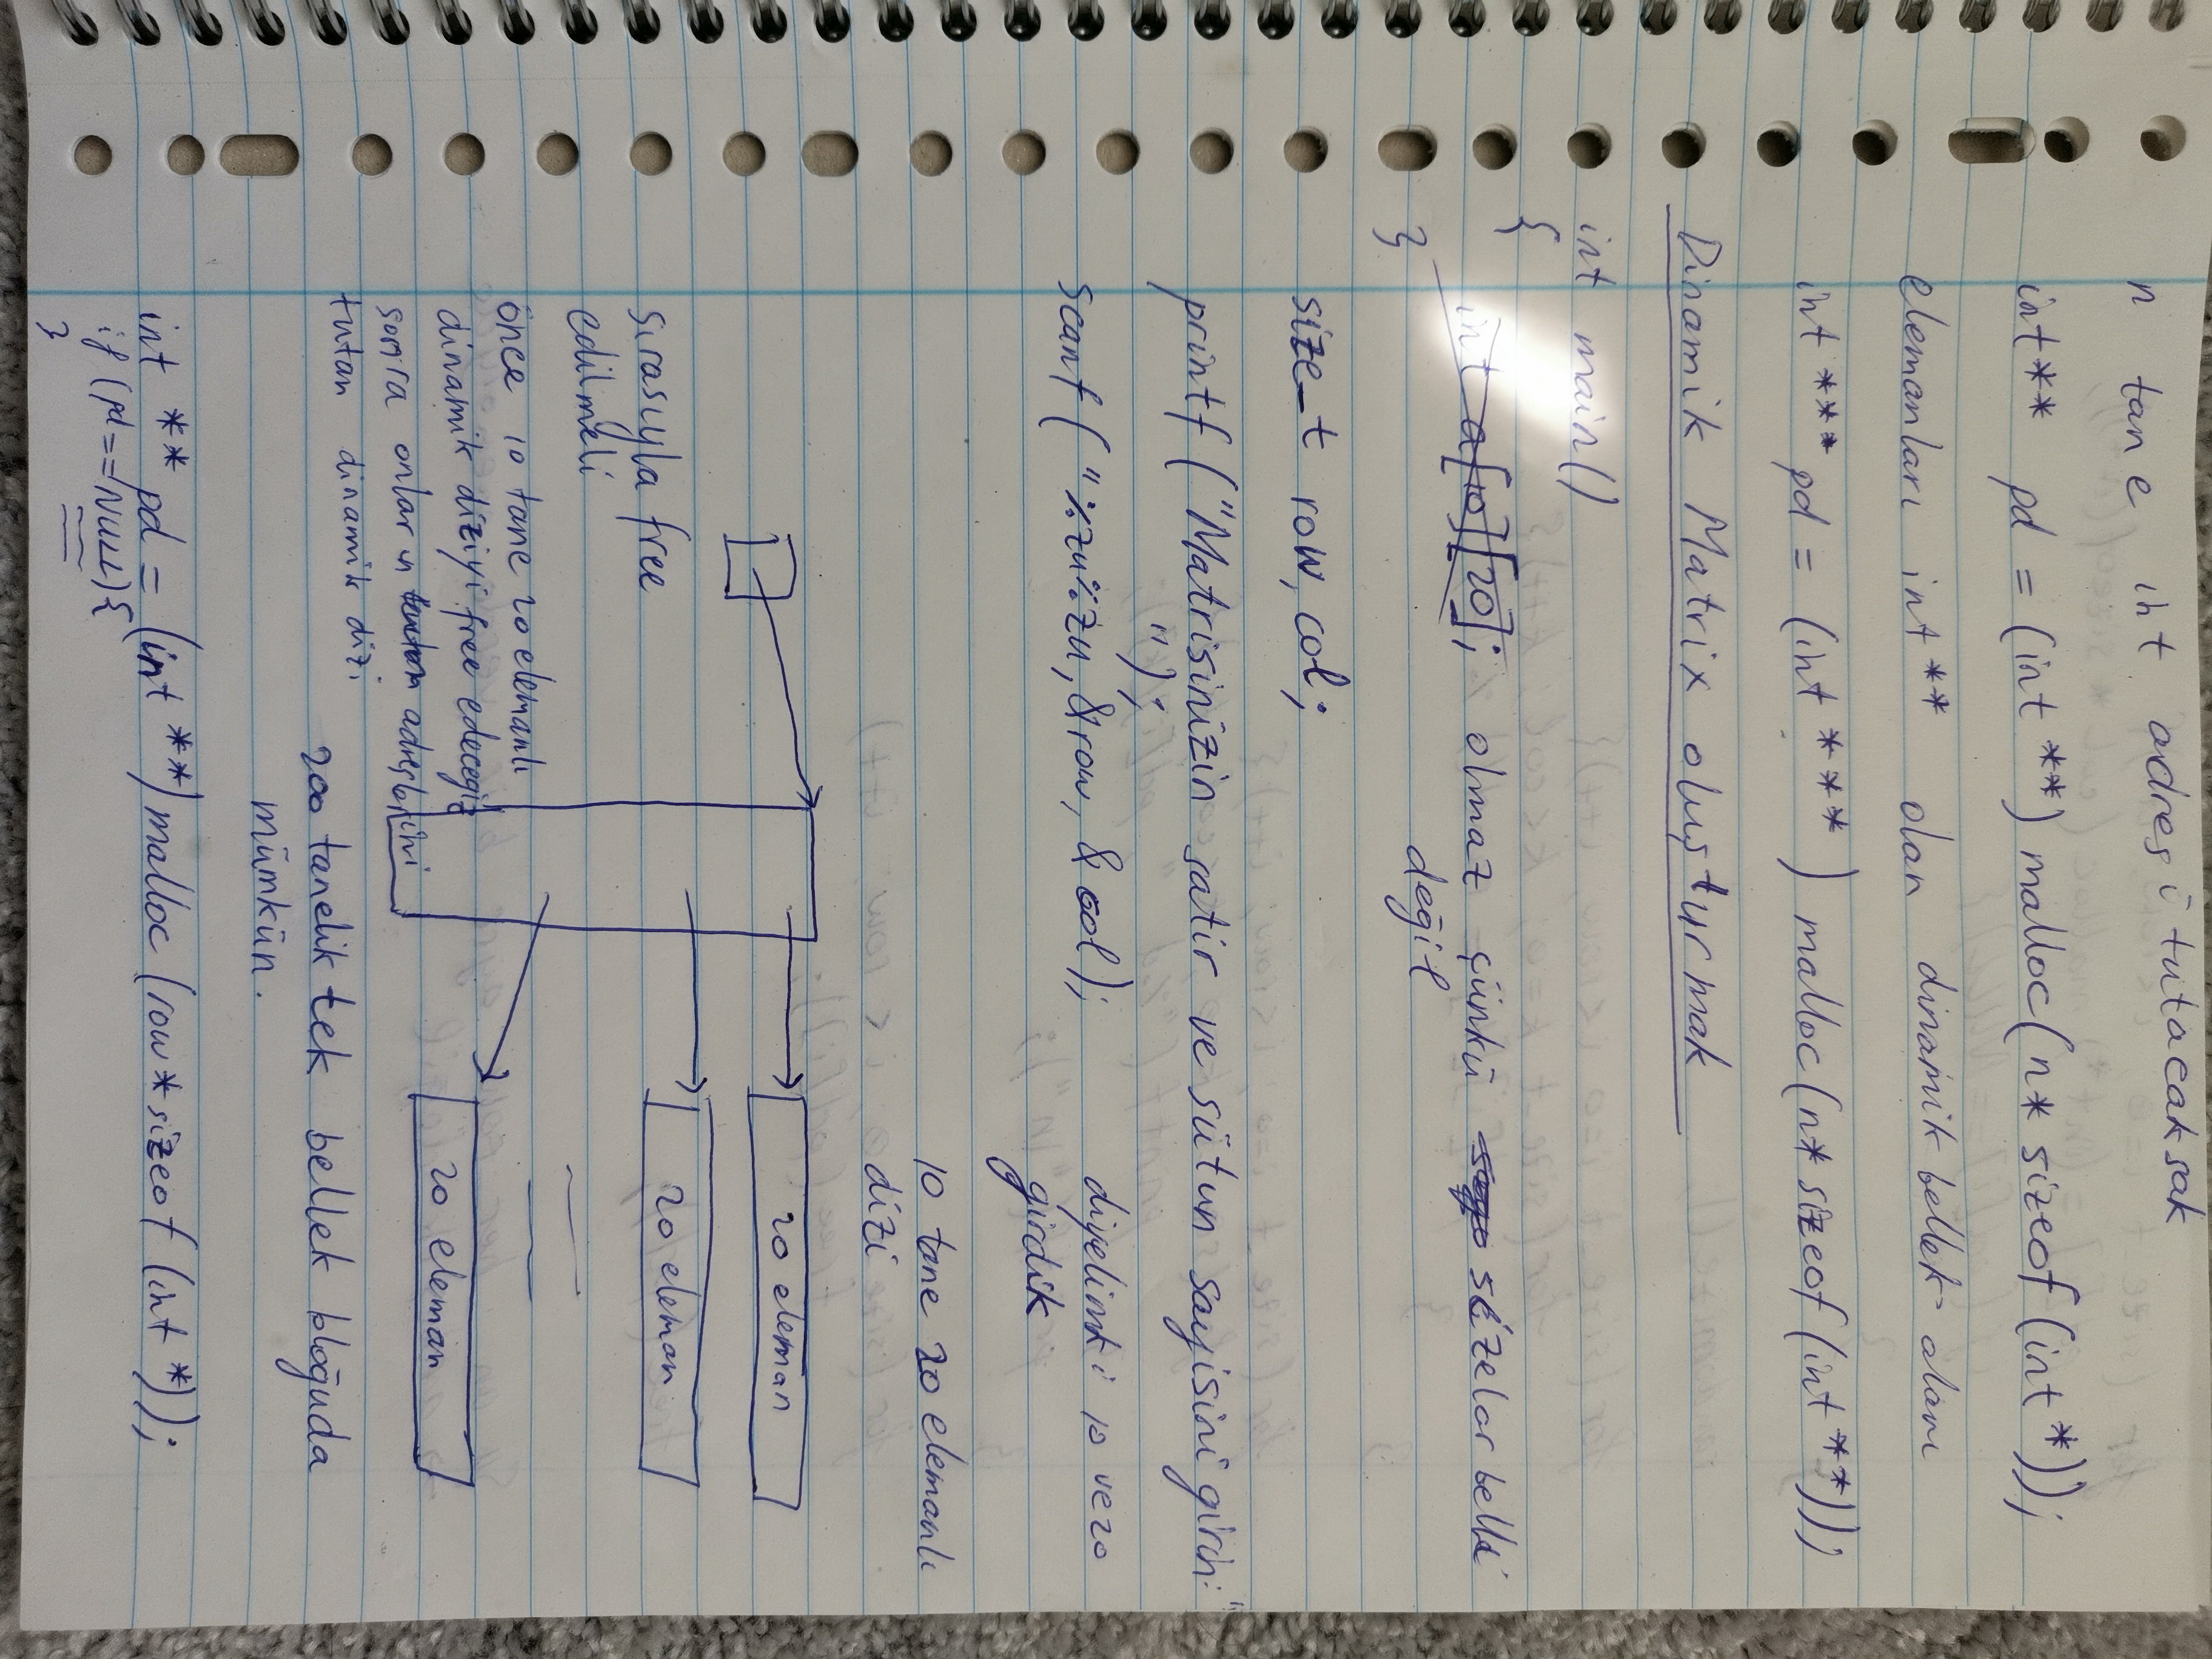 n tane int adresi tutacaksak
int** pd = (int **) malloc(n* sizeof (int *));
elemanları int** olan dinamik bellek alanı
int *** pd = (int *** ) malloc(n* sizeof (int **));
Dinamik Matrix oluşturmak
int main()
{
int a[10][20]; olmaz çünkü sizelar belli
değil
}
size_t row, col;
printf ("Matrisinizin satir ve sütun sayisini girin:"
");
scanf ( "%zu%zu, &row, & col);
diyelimki 10 ve 20
girdik
10 tane 20 elemanlı
dizi
20 eleman
20 eleman
20 eleman
sırasıyla free
edilmeli
önce 10 tane 20 elemanlı
dinamik diziyi free edecegiz
sonra onların adreslerini
tutan dinamik dizi
200 tanelik tek bellek bloğuda
mümkün.
int ** pd = (int **) malloc (row * sizeof (int *));
if (pd == NULL) {
}